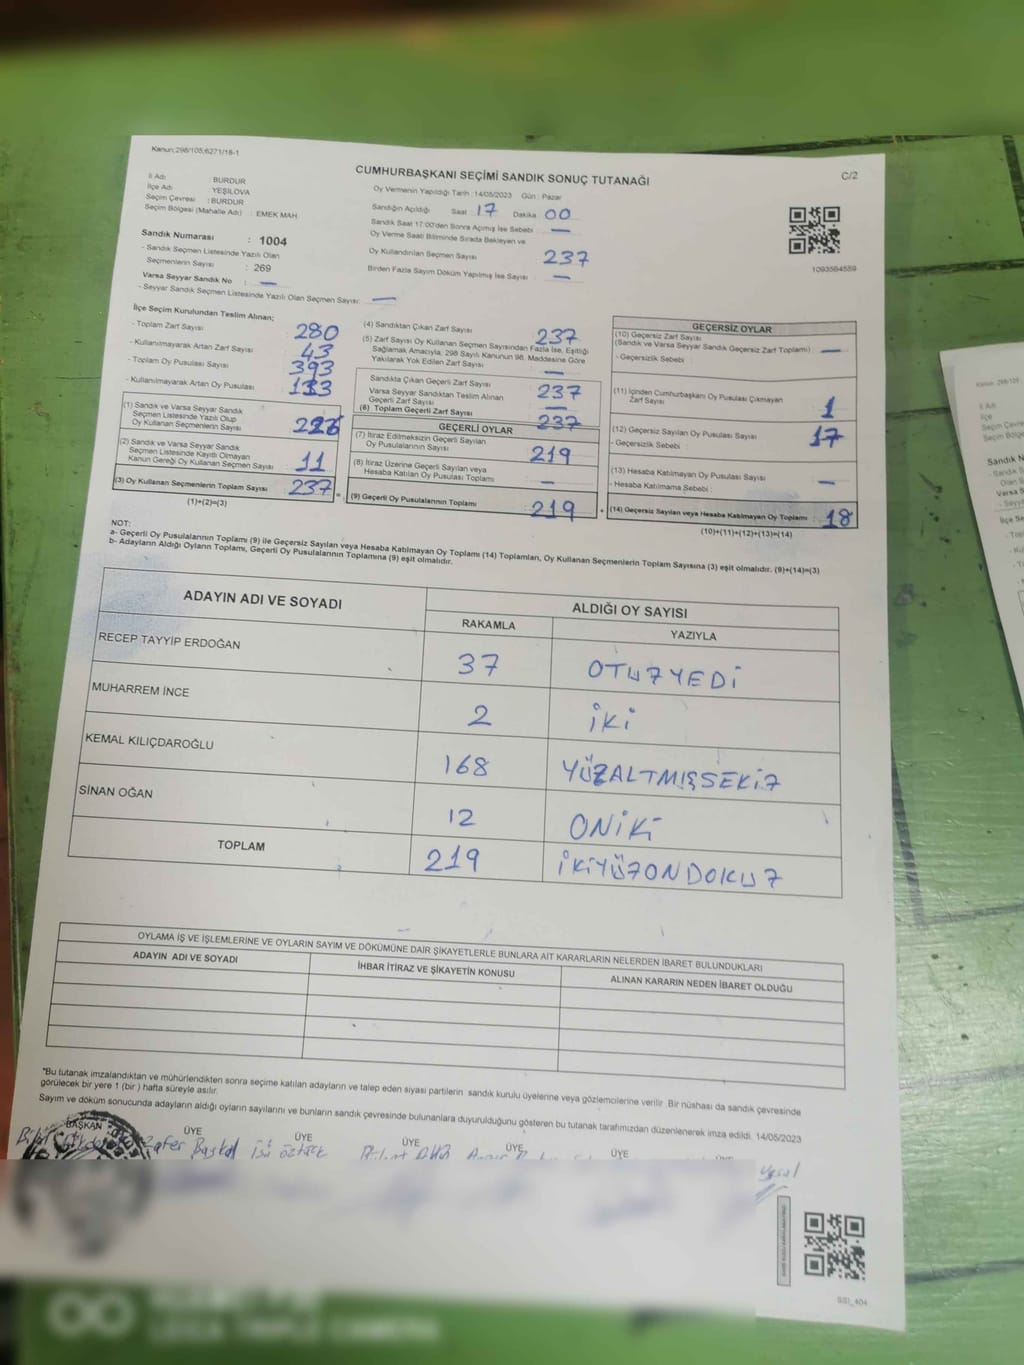 Kanun:298/105,6271/18-1
CUMHURBAŞKANI SEÇİMİ SANDIK SONUÇ TUTANAĞI
C/2
İl Adı : BURDUR
İlçe Adı YEŞİLOVA
Seçim Çevresi : BURDUR
Seçim Bölgesi (Mahalle Adı) : EMEK MAH
Oy Vermenin Yapıldığı Tarih : 14/05/2023 Gün : Pazar
Sandığın Açıldığı Saat 17 Dakika 00
Sandık Saat 17:00'den Sonra Açılmış İse Sebebi —
Oy Verme Saati Bitiminde Sırada Bekleyen ve
Oy Kullandırılan Seçmen Sayısı 237
Birden Fazla Sayım Döküm Yapılmış İse Sayısı —
1093564559
Sandık Numarası : 1004
- Sandık Seçmen Listesinde Yazılı Olan
Seçmenlerin Sayısı : 269
Varsa Seyyar Sandık No : —
- Seyyar Sandık Seçmen Listesinde Yazılı Olan Seçmen Sayısı: —
İlçe Seçim Kurulundan Teslim Alınan;
- Toplam Zarf Sayısı 280
- Kullanılmayarak Artan Zarf Sayısı 43
- Toplam Oy Pusulası Sayısı 393
- Kullanılmayarak Artan Oy Pusulası
(1) Sandık ve Varsa Seyyar Sandık
Seçmen Listesinde Yazılı Olup
Oy Kullanan Seçmenlerin Sayısı 226
(2) Sandık ve Varsa Seyyar Sandık
Seçmen Listesinde Kayıtlı Olmayan
Kanun Gereği Oy Kullanan Seçmen Sayısı 11
(3) Oy Kullanan Seçmenlerin Toplam Sayısı 237
(1)+(2)=(3)
(4) Sandıktan Çıkan Zarf Sayısı 237
(5) Zarf Sayısı Oy Kullanan Seçmen Sayısından Fazla İse, Eşitliği
Sağlamak Amacıyla, 298 Sayılı Kanunun 98. Maddesine Göre
Yakılarak Yok Edilen Zarf Sayısı —
Sandıkta Çıkan Geçerli Zarf Sayısı 237
Varsa Seyyar Sandıktan Teslim Alınan
Geçerli Zarf Sayısı —
(6) Toplam Geçerli Zarf Sayısı 237
GEÇERLİ OYLAR
(7) İtiraz Edilmeksizin Geçerli Sayılan
Oy Pusulalarının Sayısı 219
(8) İtiraz Üzerine Geçerli Sayılan veya
Hesaba Katılan Oy Pusulası Toplamı —
= (9) Geçerli Oy Pusulalarının Toplamı 219
GEÇERSİZ OYLAR
(10) Geçersiz Zarf Sayısı
(Sandık ve Varsa Seyyar Sandık Geçersiz Zarf Toplamı) —
- Geçersizlik Sebebi :
(11) İçinden Cumhurbaşkanı Oy Pusulası Çıkmayan
Zarf Sayısı 1
(12) Geçersiz Sayılan Oy Pusulası Sayısı 17
- Geçersizlik Sebebi :
(13) Hesaba Katılmayan Oy Pusulası Sayısı —
- Hesaba Katılmama Sebebi :
+ (14) Geçersiz Sayılan veya Hesaba Katılmayan Oy Toplamı 18
(10)+(11)+(12)+(13)=(14)
NOT:
a- Geçerli Oy Pusulalarının Toplamı (9) ile Geçersiz Sayılan veya Hesaba Katılmayan Oy Toplamı (14) Toplamları, Oy Kullanan Seçmenlerin Toplam Sayısına (3) eşit olmalıdır. (9)+(14)=(3)
b- Adayların Aldığı Oyların Toplamı, Geçerli Oy Pusulalarının Toplamına (9) eşit olmalıdır.
ADAYIN ADI VE SOYADI ALDIĞI OY SAYISI
RAKAMLA YAZIYLA
RECEP TAYYİP ERDOĞAN 37 OTUZYEDİ
MUHARREM İNCE 2 İKİ
KEMAL KILIÇDAROĞLU 168 YÜZALTMIŞSEKİZ
SİNAN OĞAN 12 ONİKİ
TOPLAM 219 İKİYÜZONDOKUZ
OYLAMA İŞ VE İŞLEMLERİNE VE OYLARIN SAYIM VE DÖKÜMÜNE DAİR ŞİKAYETLERLE BUNLARA AİT KARARLARIN NELERDEN İBARET BULUNDUKLARI
ADAYIN ADI VE SOYADI İHBAR İTİRAZ VE ŞİKAYETİN KONUSU ALINAN KARARIN NEDEN İBARET OLDUĞU
"Bu tutanak imzalandıktan ve mühürlendikten sonra seçime katılan adayların ve talep eden siyasi partilerin sandık kurulu üyelerine veya gözlemcilerine verilir .Bir nüshası da sandık çevresinde
görülecek bir yere 1 (bir ) hafta süreyle asılır.
Sayım ve döküm sonucunda adayların aldığı oyların sayılarını ve bunların sandık çevresinde bulunanlara duyurulduğunu gösteren bu tutanak tarafımızdan düzenlenerek imza edildi. 14/05/2023
BAŞKAN ÜYE ÜYE ÜYE ÜYE ÜYE
Zafer